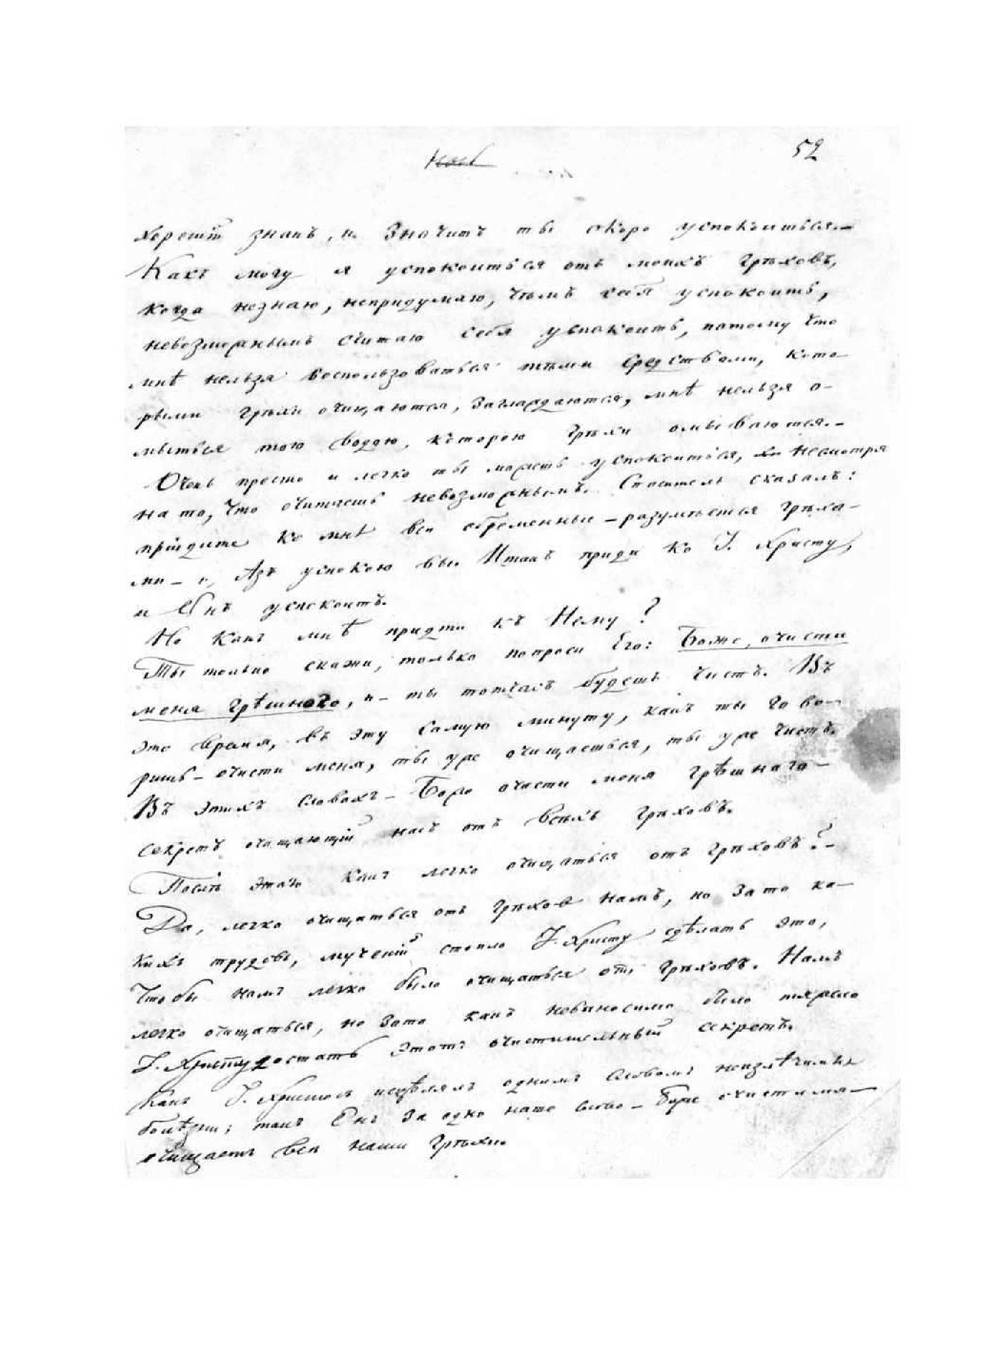 52
хорошій знакъ, и значитъ ты скоро успокоишься.—
Какъ могу я успокоиться отъ моихъ грѣховъ,
когда незнаю, непридумаю, чѣмъ себя успокоить,
невозможнымъ считаю себя успокоить, потому что
мнѣ нельзя воспользоваться тѣми средствами, кото-
рыми грѣхи очищаются, заглаждаются, мнѣ нельзя о-
мыться тою водою, которою грѣхи омываются.—
Очень просто и легко ты можешь успокоиться, несмотря
на то, что считаешь невозможнымъ. Спаситель сказалъ:
пріидите ко мнѣ вси обремененніи — разумѣется грѣха-
ми — и Азъ упокою вы. Итакъ приди ко І. Христу,
и Онъ успокоитъ.
Но какъ мнѣ придти къ Нему?
Ты только скажи, только попроси Его: Боже, очисти
меня грѣшнаго, и — ты тотчасъ будешь чистъ. Въ
это время, въ эту самую минуту, какъ ты гово-
ришь — очисти меня, ты уже очищаешься, ты уже чистъ.
Въ этихъ словахъ — Боже очисти меня грѣшнаго —
секретъ очищающій насъ отъ всѣхъ грѣховъ.
Послѣ этаго какъ легко очищаться отъ грѣховъ? —
Да, легко очищаться отъ грѣховъ намъ, но за то ка-
кихъ трудовъ, мученій стоило І. Христу сдѣлать это,
чтобы намъ легко было очищаться отъ грѣховъ. Намъ
легко очищаться, но зато какъ невыносимо было тяжело
І. Христу достать этотъ очистительный секретъ.
Какъ І. Христосъ исцѣлялъ однимъ словомъ неизлѣчимыя
болѣзни; такъ Онъ за одно наше слово — Боже очисти мя —
очищаетъ вси наши грѣхи.